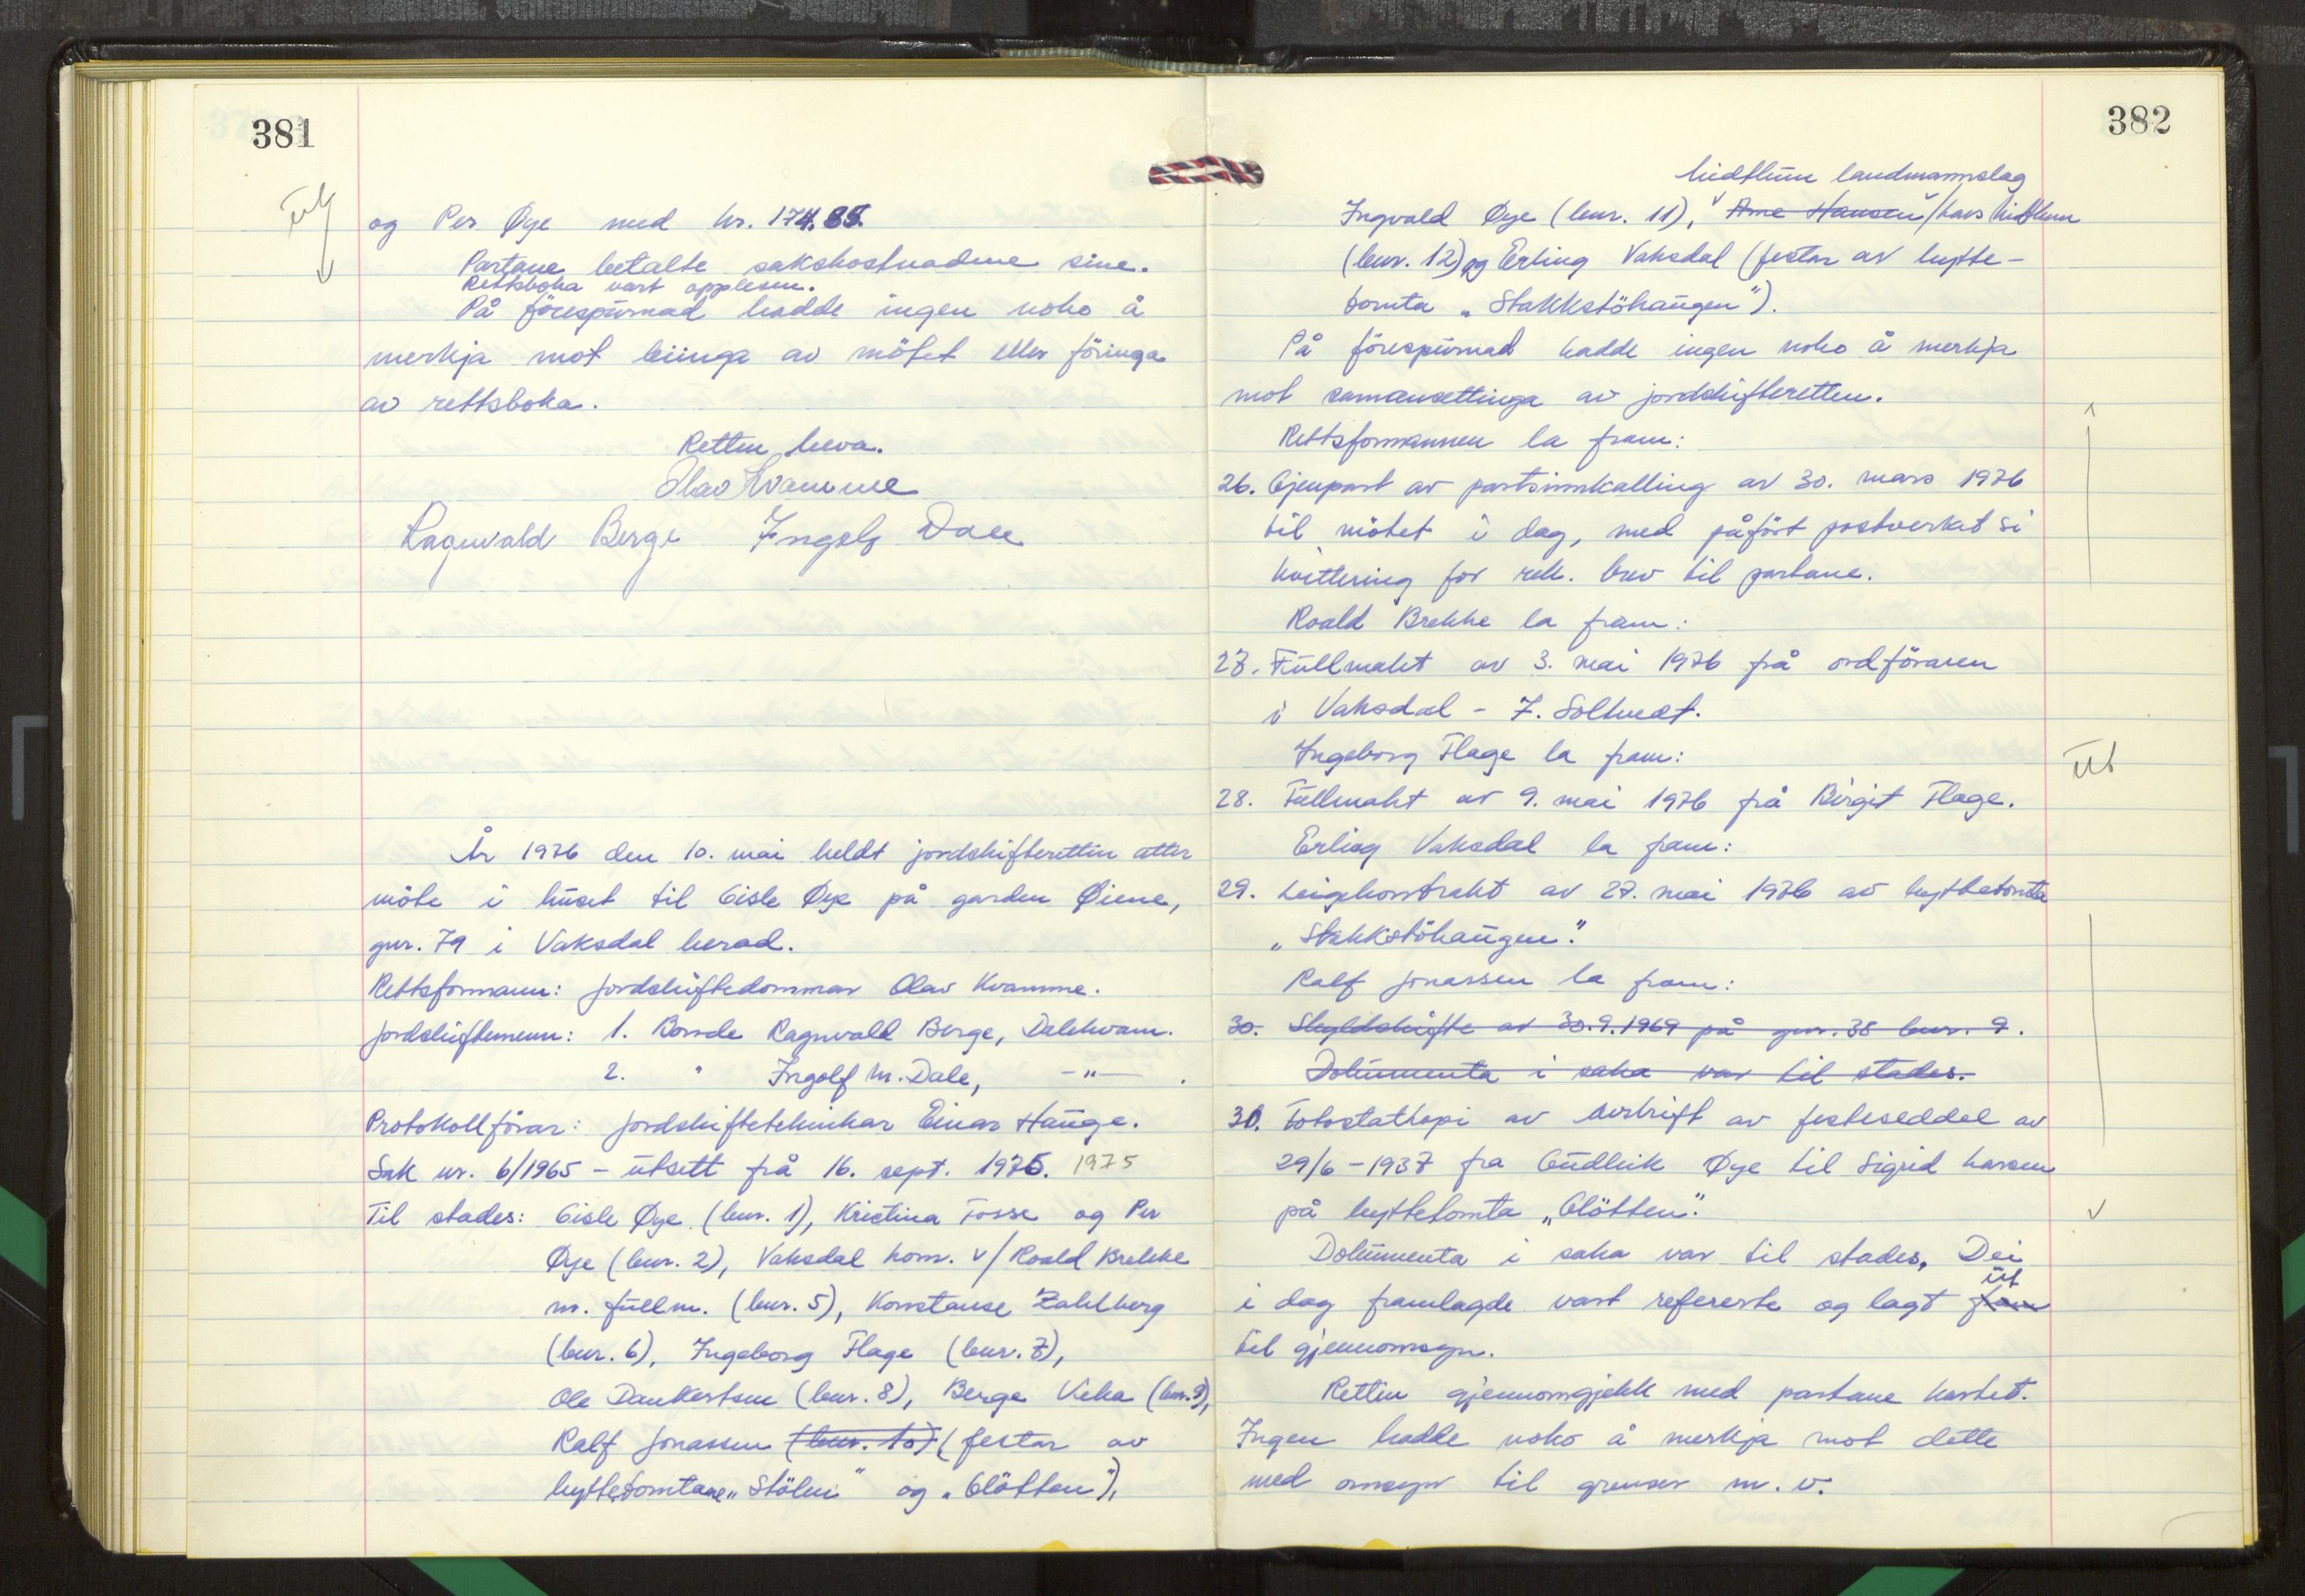 381
Ut
og Per Øye med kr. 174.85.
Partane betalte sakskostnadene sine.
Rettsboka vart opplesen.
På førespurnad hadde ingen noko å
merkja mot leiinga av møtet eller føringa
av rettsboka.
Retten heva.
Olav Kvamme
Ragnvald Berge Ingolf Dale
År 1976 den 10. mai heldt jordskifteretten atter
møte i huset til Gisle Øye på garden Øiene,
gnr. 79 i Vaksdal herad.
Rettsformann: Jordskiftedommar Olav Kvamme.
Jordskiftemenn: 1. Bonde Ragnvald Berge, Dalekvam.
2. " Ingolf M. Dale, -"- .
Protokollførar: Jordskifteteknikar Einar Hauge.
Sak nr. 6/1965 - utsett frå 16. sept. 1975. 1975
Til stades: Gisle Øye (bnr. 1), Kristina Fosse og Per
Øye (bnr. 2), Vaksdal kom. v/ Roald Brekke
m. fullm. (bnr. 5), Konstanse Zahlberg
(bnr. 6), Ingeborg Flage (bnr. 7),
Ole Dankertsen (bnr. 8), Berge Veka (bnr. 9),
Ralf Jonassen (bnr. 10) (festar av
hyttetomtane „Stølen" og „Gløtten"),
382
Midthun landmannslag
Ingvald Øye (bnr. 11), v Arne Hansen / Lars Midthun
(bnr. 12) og Erling Vaksdal (festar av hytte-
tomta „Stakkstøhaugen").
På førespurnad hadde ingen noko å merkja
mot samansettinga av jordskifteretten.
Rettsformannen la fram:
26. Gjenpart av partsinnkalling av 30. mars 1976
til møtet i dag, med påført postverket si
kvittering for rek. brev til partane.
Roald Brekke la fram:
27. Fullmakt av 3. mai 1976 frå ordføraren
i Vaksdal - J. Soltvedt.
Ingeborg Flage la fram:
28. Fullmakt av 9. mai 1976 frå Birgit Flage.
Ut
Erling Vaksdal la fram:
29. Leigekontrakt av 27. mai 1976 av hyttetomta
„Stakkstøhaugen".
Ralf Jonassen la fram:
30. Skyldskifte av 30.9.1969 på gnr. 38 bnr. 9.
Dokumenta i saka var til stades.
30. Fotostatkopi av avskrift av festeseddel av
29/6-1937 fra Gudleik Øye til Sigrid Larsen
på hyttetomta „Gløtten".
Dokumenta i saka var til stades. Dei
i dag framlagde vart refererte og lagt fram ut
til gjennomsyn.
Retten gjennomgjekk med partane kartet.
Ingen hadde noko å merkja mot dette
med omsyn til grenser m. v.